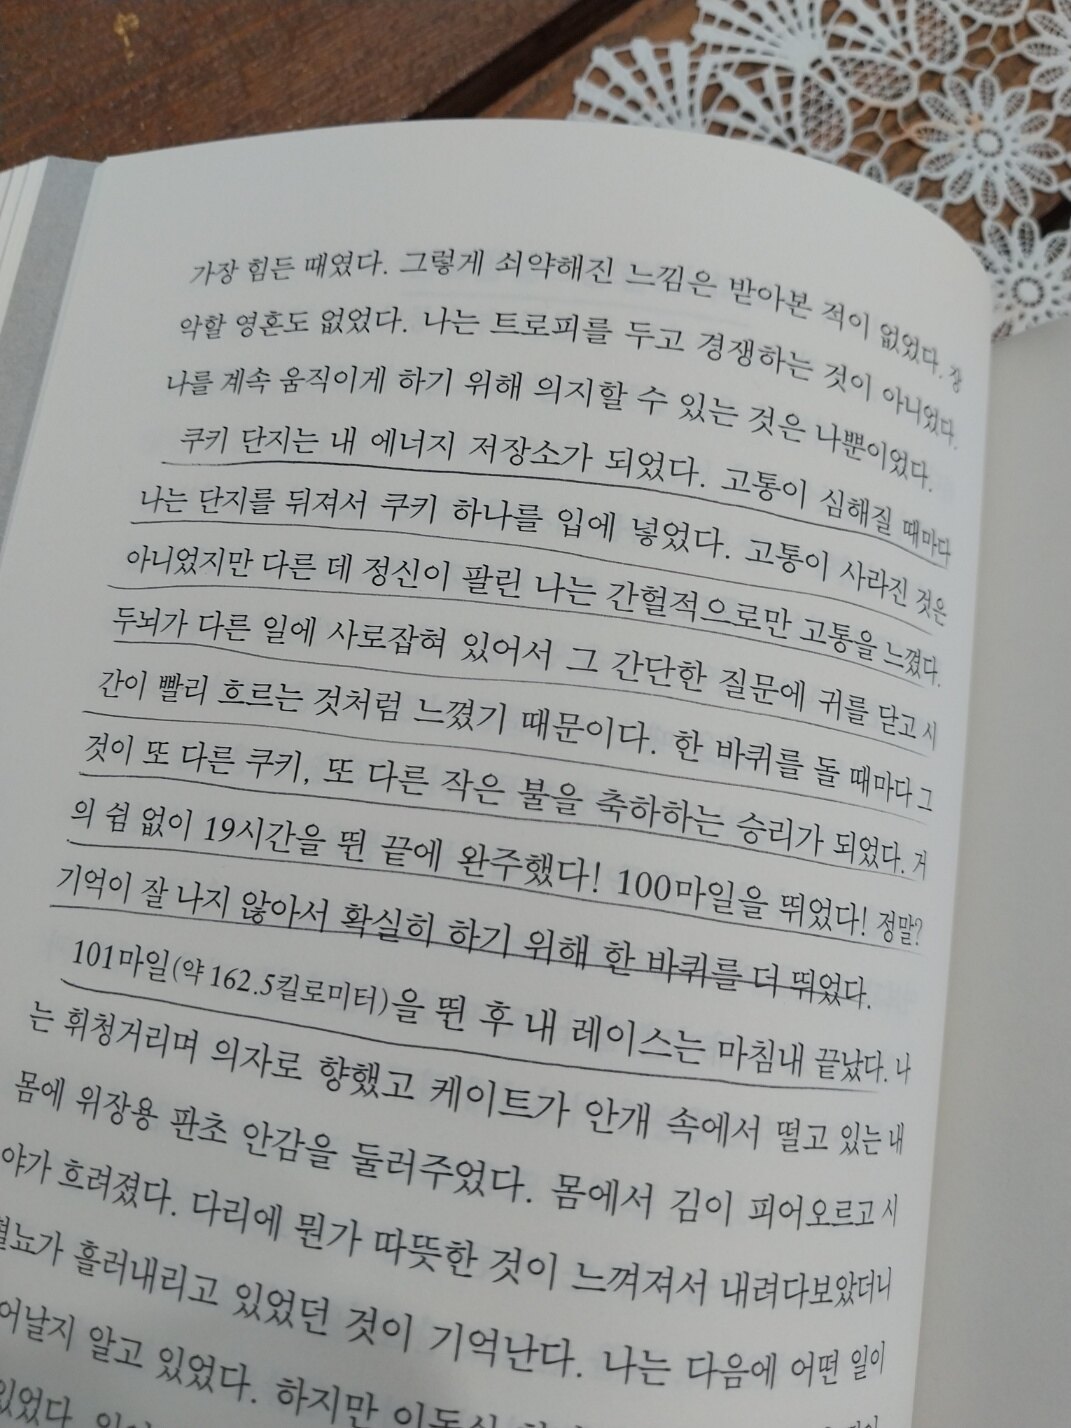 가장 힘든 때였다. 그렇게 쇠약해진 느낌은 받아본 적이 없었다. 장
악할 영혼도 없었다. 나는 트로피를 두고 경쟁하는 것이 아니었다.
나를 계속 움직이게 하기 위해 의지할 수 있는 것은 나뿐이었다.
쿠키 단지는 내 에너지 저장소가 되었다. 고통이 심해질 때마다
나는 단지를 뒤져서 쿠키 하나를 입에 넣었다. 고통이 사라진 것은
아니었지만 다른 데 정신이 팔린 나는 간헐적으로만 고통을 느꼈다.
두뇌가 다른 일에 사로잡혀 있어서 그 간단한 질문에 귀를 닫고 시
간이 빨리 흐르는 것처럼 느꼈기 때문이다. 한 바퀴를 돌 때마다 그
것이 또 다른 쿠키, 또 다른 작은 불을 축하하는 승리가 되었다. 거
의 쉼 없이 19시간을 뛴 끝에 완주했다! 100마일을 뛰었다! 정말?
기억이 잘 나지 않아서 확실히 하기 위해 한 바퀴를 더 뛰었다.
101마일(약 162.5킬로미터)을 뛴 후 내 레이스는 마침내 끝났다. 나
는 휘청거리며 의자로 향했고 케이트가 안개 속에서 떨고 있는 내
몸에 위장용 판초 안감을 둘러주었다. 몸에서 김이 피어오르고 시
야가 흐려졌다. 다리에 뭔가 따뜻한 것이 느껴져서 내려다보았더니
혈뇨가 흘러내리고 있었던 것이 기억난다. 나는 다음에 어떤 일이
어날지 알고 있었다. 하지만
있었다.